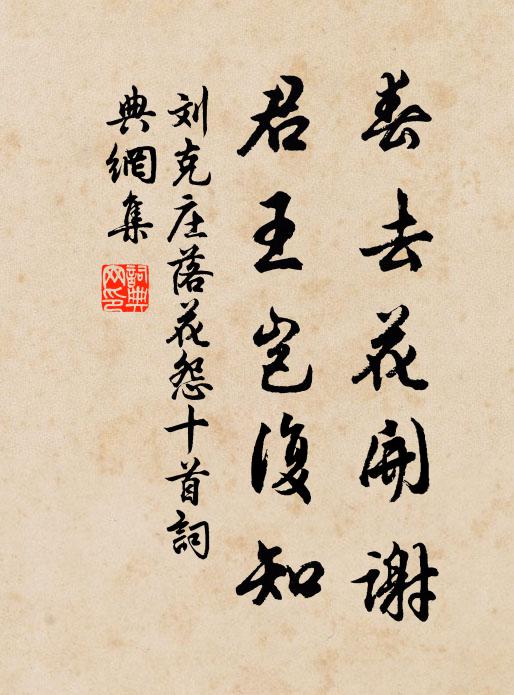 春去花開謝
君王豈復知
刘克庄落花怨十首詞
典網集
詞典
网印